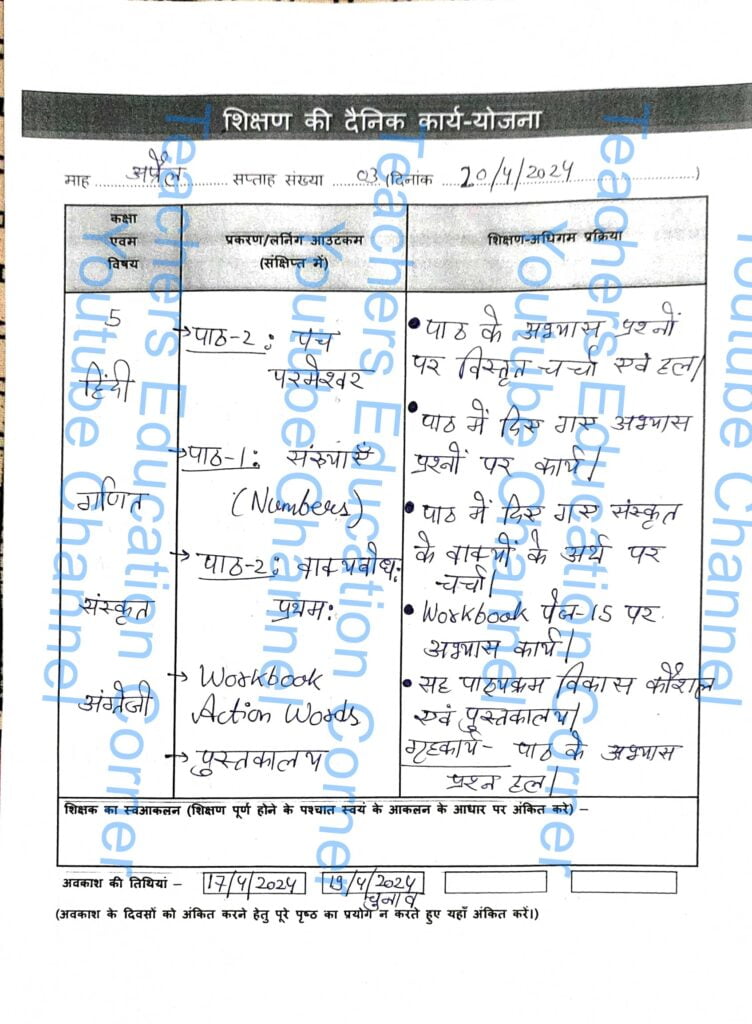 शिक्षण की दैनिक कार्य-योजना
माह अप्रैल सप्ताह संख्या 03 (दिनांक 20/4/2024)
कक्षा
एवम
विषय
प्रकरण/लर्निंग आउटकम
(संक्षिप्त में)
शिक्षण-अधिगम प्रक्रिया
5
हिंदी
→पाठ-2: पंच
परमेश्वर
• पाठ के अभ्यास प्रश्नों
पर विस्तृत चर्चा एवं हल।
गणित
→पाठ-1: संख्याएँ
(Numbers)
• पाठ में दिए गए अभ्यास
प्रश्नों पर कार्य।
संस्कृत
→पाठ-2: वाक्यबोधः
प्रथमः
• पाठ में दिए गए संस्कृत
के वाक्यों के अर्थ पर
चर्चा।
अंग्रेजी
→ Workbook
Action Words
• Workbook पेज-15 पर
अभ्यास कार्य।
→ पुस्तकालय
• सह पाठ्यक्रम विकास कौशल
एवं पुस्तकालय।
गृहकार्य- पाठ के अभ्यास
प्रश्न हल।
शिक्षक का स्वआकलन (शिक्षण पूर्ण होने के पश्चात स्वयं के आकलन के आधार पर अंकित करे) –
अवकाश की तिथियां – 17/4/2024 19/4/2024
चुनाव
(अवकाश के दिवसों को अंकित करने हेतु पूरे पृष्ठ का प्रयोग न करते हुए यहाँ अंकित करें।)
Teachers Education Corner
Youtube Channel
Teachers Education Corner
Youtube Channel
Teachers Education Corner
Youtube Channel